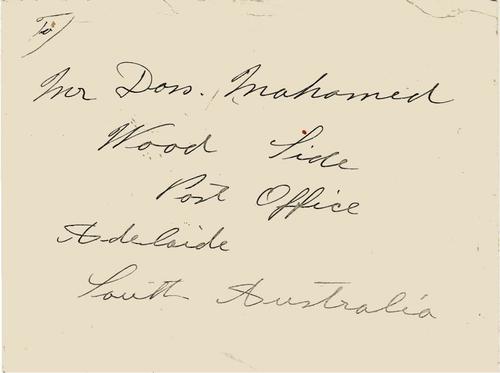 To
Mr Dos. Mahomed
Wood Side
Post Office
Adelaide
South Australia